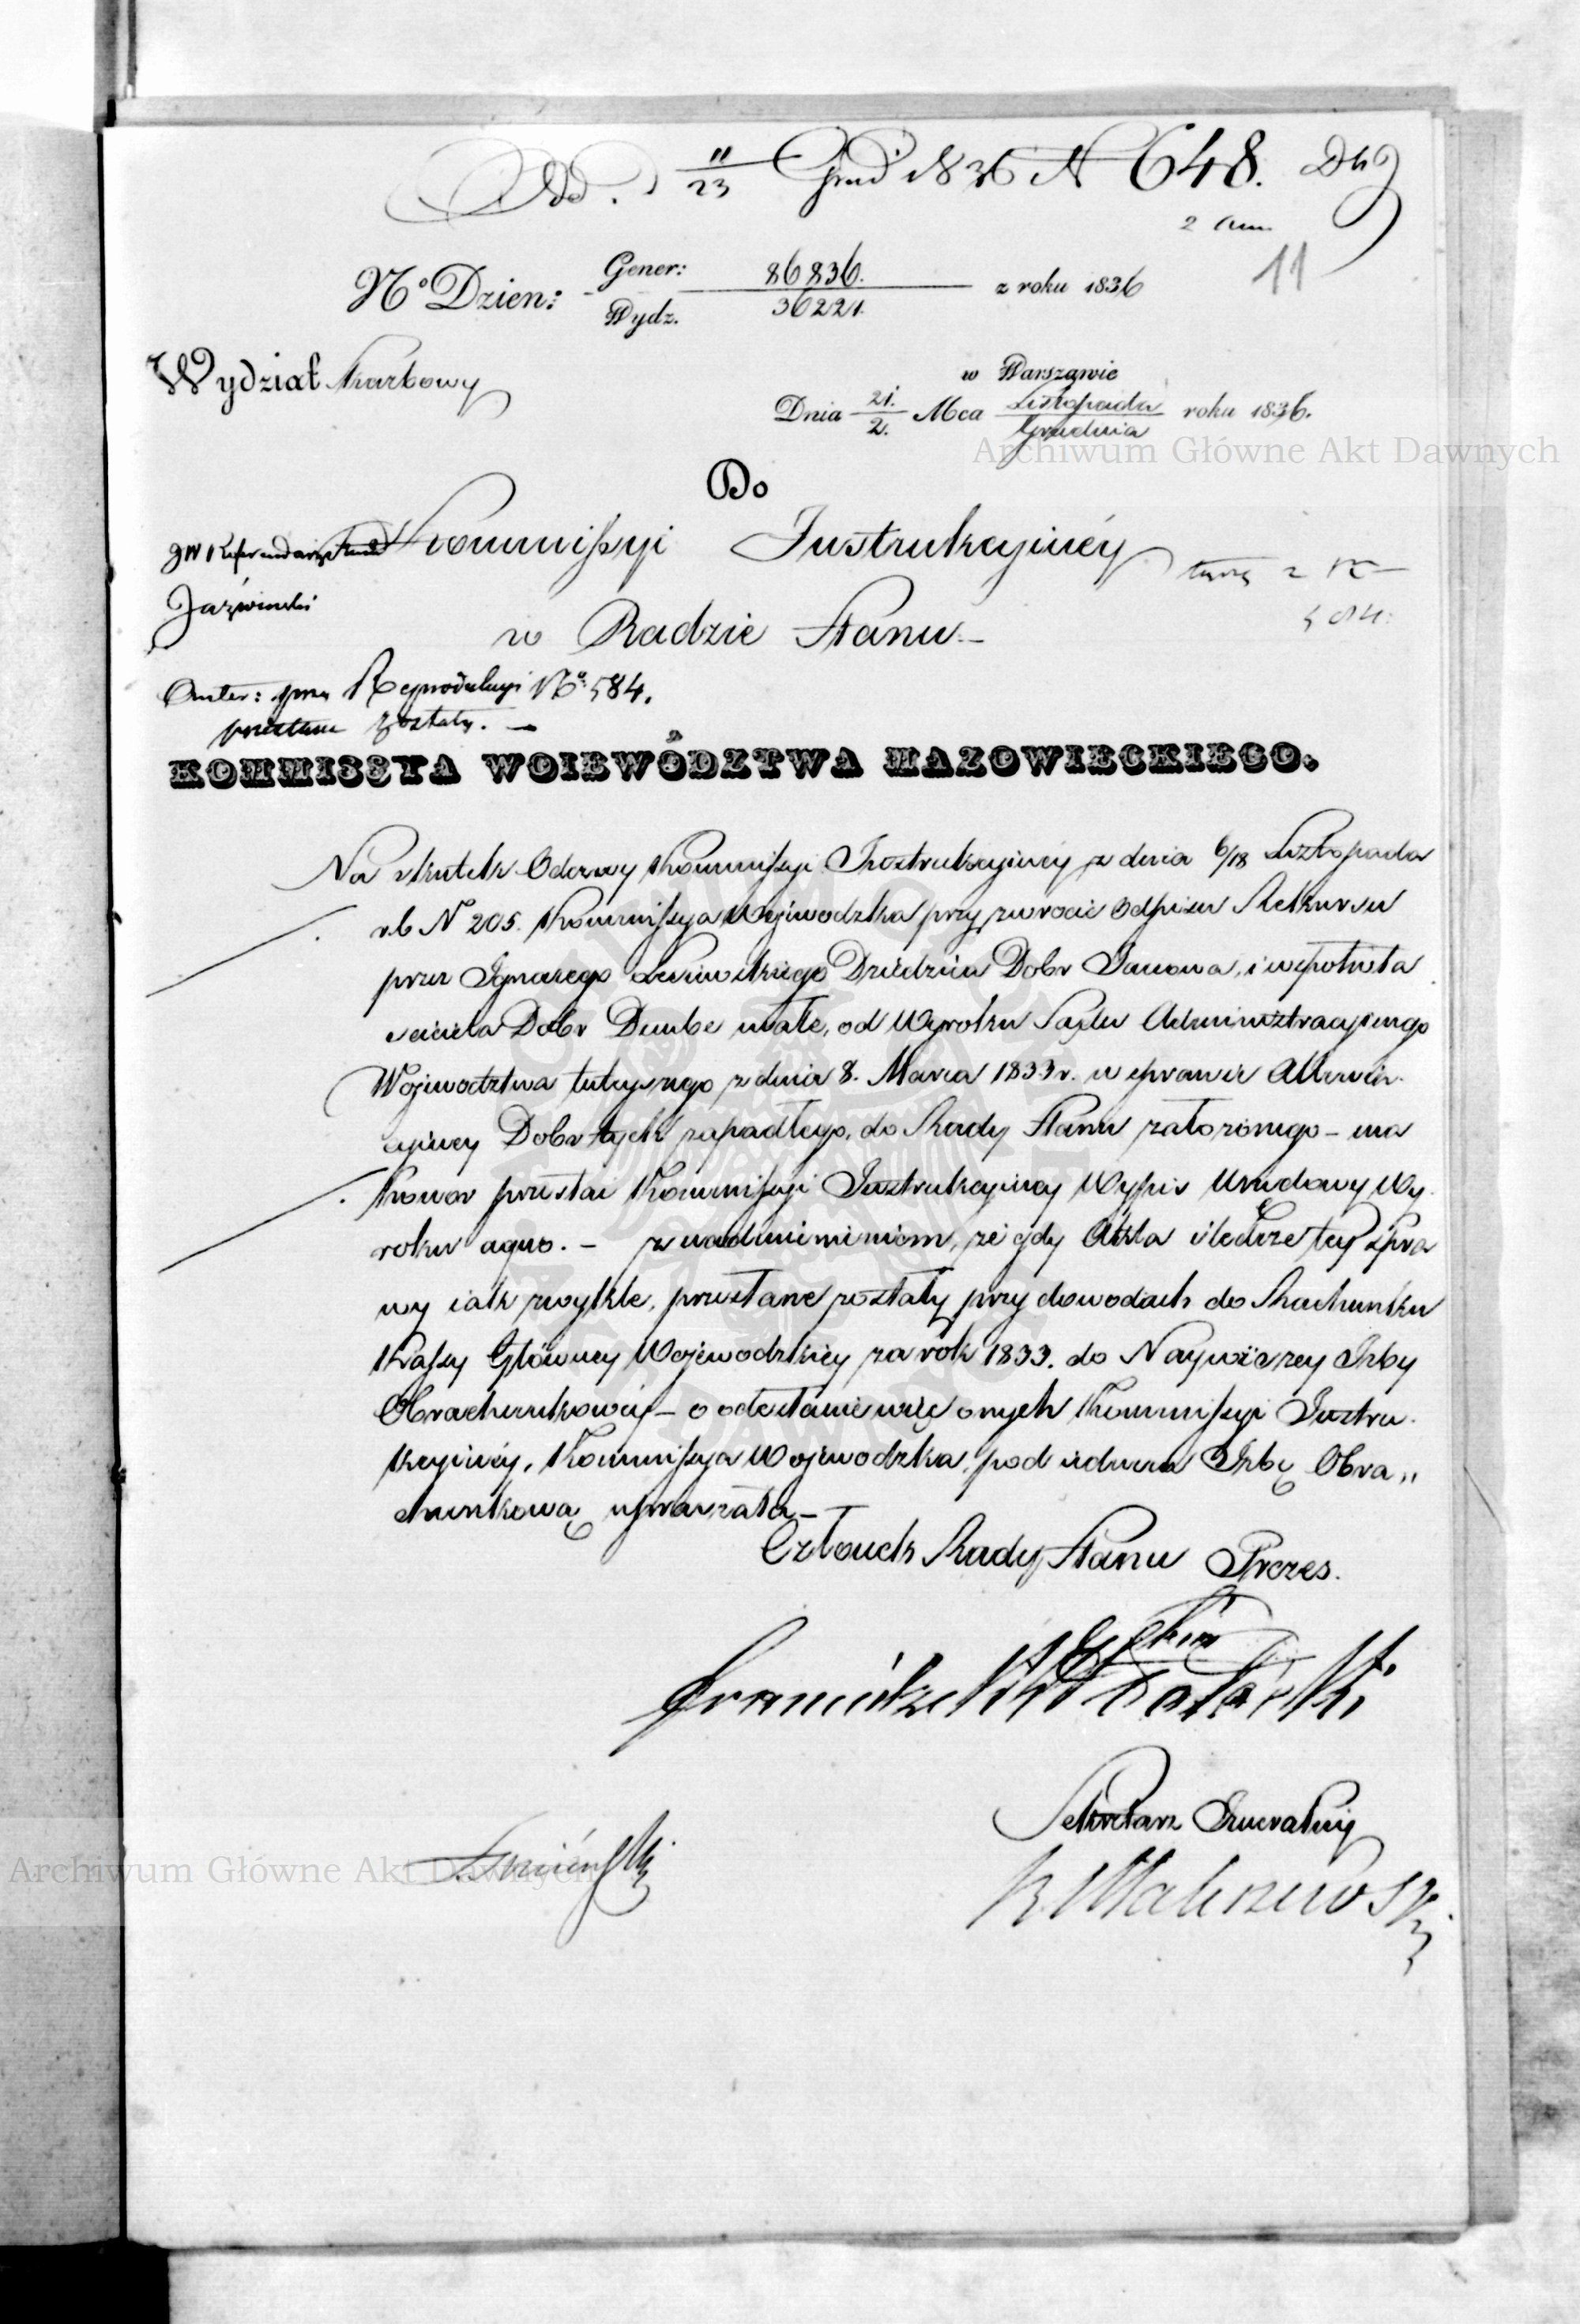 Odd. d. 11/23 Grud 1836 N 648. Dh
2 Ann.
11
N° Dzien: Gener: 86836. / Wydz. 36221. z roku 1836
Wydział Skarbowy
w Warszawie
Dnia 21./2. Mca Listopada/Grudnia roku 1836.
Archiwum Główne Akt Dawnych
Do
Kommissyi Instrukcyinéy
JW Referendarz Stanu
Jaźwiński
w Radzie Stanu.—
584.
przy Reprodukcyi N° 584.
przesłane zostały. —
KOMMISSYA WOIEWÓDZTWA MAZOWIECKIEGO.
Na skutek Odezwy Kommissyi Instrukcyinéy z dnia 6/18 Listopada
r.b N 205. Kommissya Wojewodzka przy zwrocie odpisu Rekursu
przez Ignacego Dziedzica Dobr Janowa, i współwła
ściciela Dobr Dembe małe, od Wyroku Sądu Administracyinego
Wojewodztwa tuteyszego z dnia 8. Marca 1833 r. w sprawie
Dobr tych zapadłego, do Rady Stanu założonego — ma
honor przesłać Kommissyi Instrukcyiney Wypis Urzędowy Wy
roku aquo. — z nadmienieniem, że gdy Akta i ledzze tey Spra
wy iak zwykle, przesłane zostały przy dowodach do Rachunku
Kassy Głównéy Wojewodzkiéy za rok 1833. do Naywyższey Izby
Obrachunkowéy — o odesłanie więc onych Kommissyi Instru
kcyinéy, Kommissya Wojewodzka, pod iednem Izbę Obra„
chunkową upraszała —
Członek Rady Stanu Prezes.
Sekretarz Generalny
R Maliszewski
Archiwum Główne Akt Dawnych